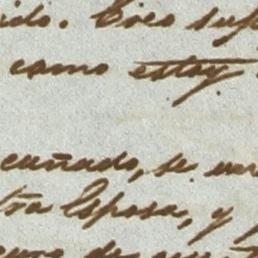 ido. Creo sup
como estoy
cuñado, se un
tra Esposa, y
de